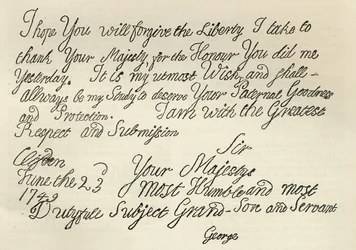 I hope You will forgive the Liberty I take to
thank Your Majesty, for the Honour You did me
Yesterday. It is my utmost Wish, and shall
allways be my Study to deserve Your Paternal Goodness
and Protection. I am with the Greatest
Respect and Submission
Sir
Your Majestys
June the 23
most Humble and most
Dutyfull Subject Grand-Son and Servant
George